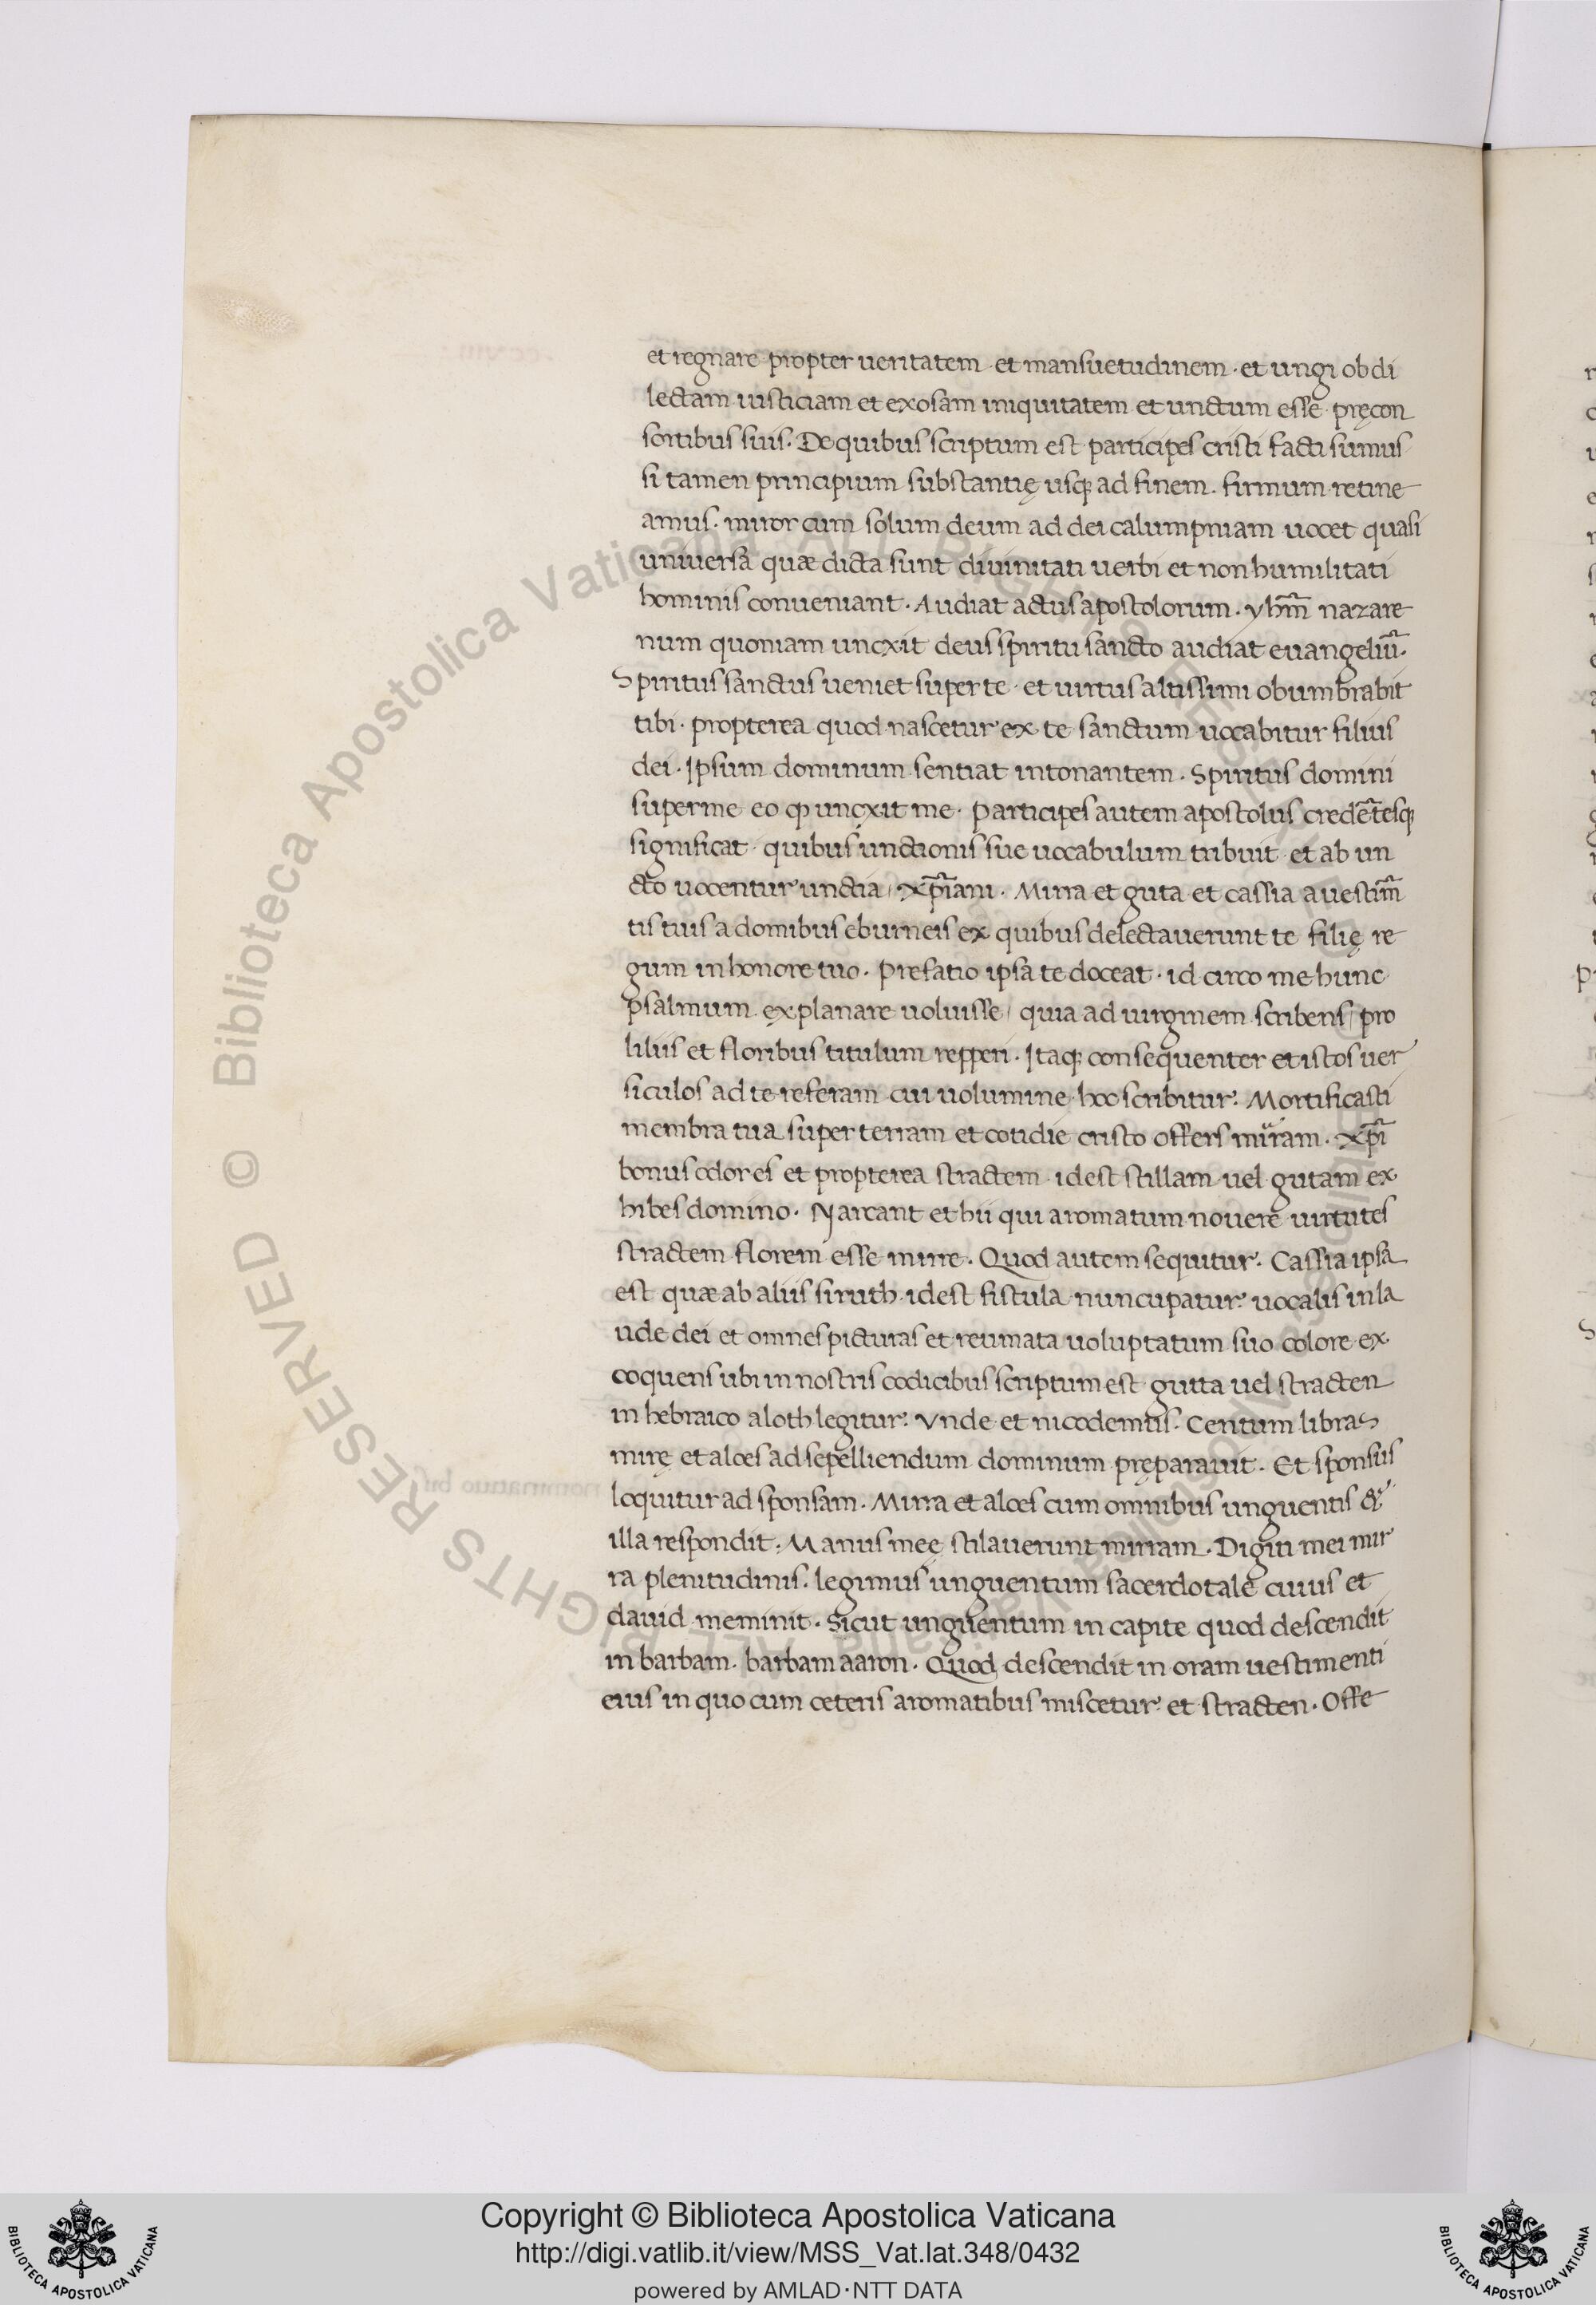 et regnare propter ueritatem · et mansuetudinem · et ungi ob di
lectam iusticiam et exosam iniquitatem et unctum esse pręcon
sortibus suis. De quibus scriptum est participes cristi facti sumus
si tamen principium substantię usq ad finem. firmum retine
amus. miror cum solum deum ad dei calumpniam uocet quasi
universa quæ dicta sunt divinitati uerbi et non humilitati
hominis conueniant. Audiat actus apostolorum. yhm̄ nazare
num quoniam uncxit deus spiritu sancto audiat euangeliū.
Spiritus sanctus ueniet super te · et uirtus altissimi obumbrabit
tibi. propterea quod nascetur ex te sanctum uocabitur filius
dei. Ipsum dominum sentiat intonantem. Spiritus domini
super me eo ꝙ uncxit me. Participes autem apostolus credētesq
significat · quibus unctionis sue uocabulum tribuit · et ab un
cto uocentur uncti a/ xp̄iani. Mirra et guta et cassia a uestim̄
tis tuis a domibus eburneis ex quibus delectauerunt te filię re
gum in honore tuo. Prefatio ipsa te doceat · id circo me hunc
psalmum explanare uoluisse/ quia ad uirginem scribens/ pro
liliis et floribus titulum repperi. Itaq consequenter et istos uer
siculos ad te referam cui uolumine hoc scribitur: Mortificasti
membra tua super terram et cotidie cristo offers miram. xp̄i
bonus odor es et propterea stractem · idest stillam uel gutam ex
hibes domino. Narrant et hii qui aromatum nouere uirtutes
stractem florem esse mirre. Quod autem sequitur. Cassia ipsa
est quæ ab aliis siruth · idest fistula nuncupatur: uocalis in la
ude dei et omnes picturas et reumata uoluptatum suo colore ex
coquens ubi in nostris codicibus scriptum est gutta uel stracten
in hebraico aloth legitur: Vnde et nicodemus. Centum libras
mirę et aloes ad sepelliendum dominum pręparauit. Et sponsus
loquitur ad sponsam. Mirra et aloes cum omnibus unguentis &
illa respondit. Manus meę stilauerunt mirram. Digiti mei mir
ra plenitudinis. legimus unguentum sacerdotale cuius et
dauid meminit. Sicut unguentum in capite quod descendit
in barbam. barbam aaron. Quod descendit in oram uestimenti
eius in quo cum ceteris aromatibus miscetur: et stracten. Offe
© Biblioteca Apostolica Vaticana ALL RIGHTS RESERVED
© Biblioteca Apostolica Vaticana ALL RIGHTS RESERVED
Copyright © Biblioteca Apostolica Vaticana
http://digi.vatlib.it/view/MSS_Vat.lat.348/0432
powered by AMLAD·NTT DATA
BIBLIOTECA APOSTOLICA VATICANA
BIBLIOTECA APOSTOLICA VATICANA